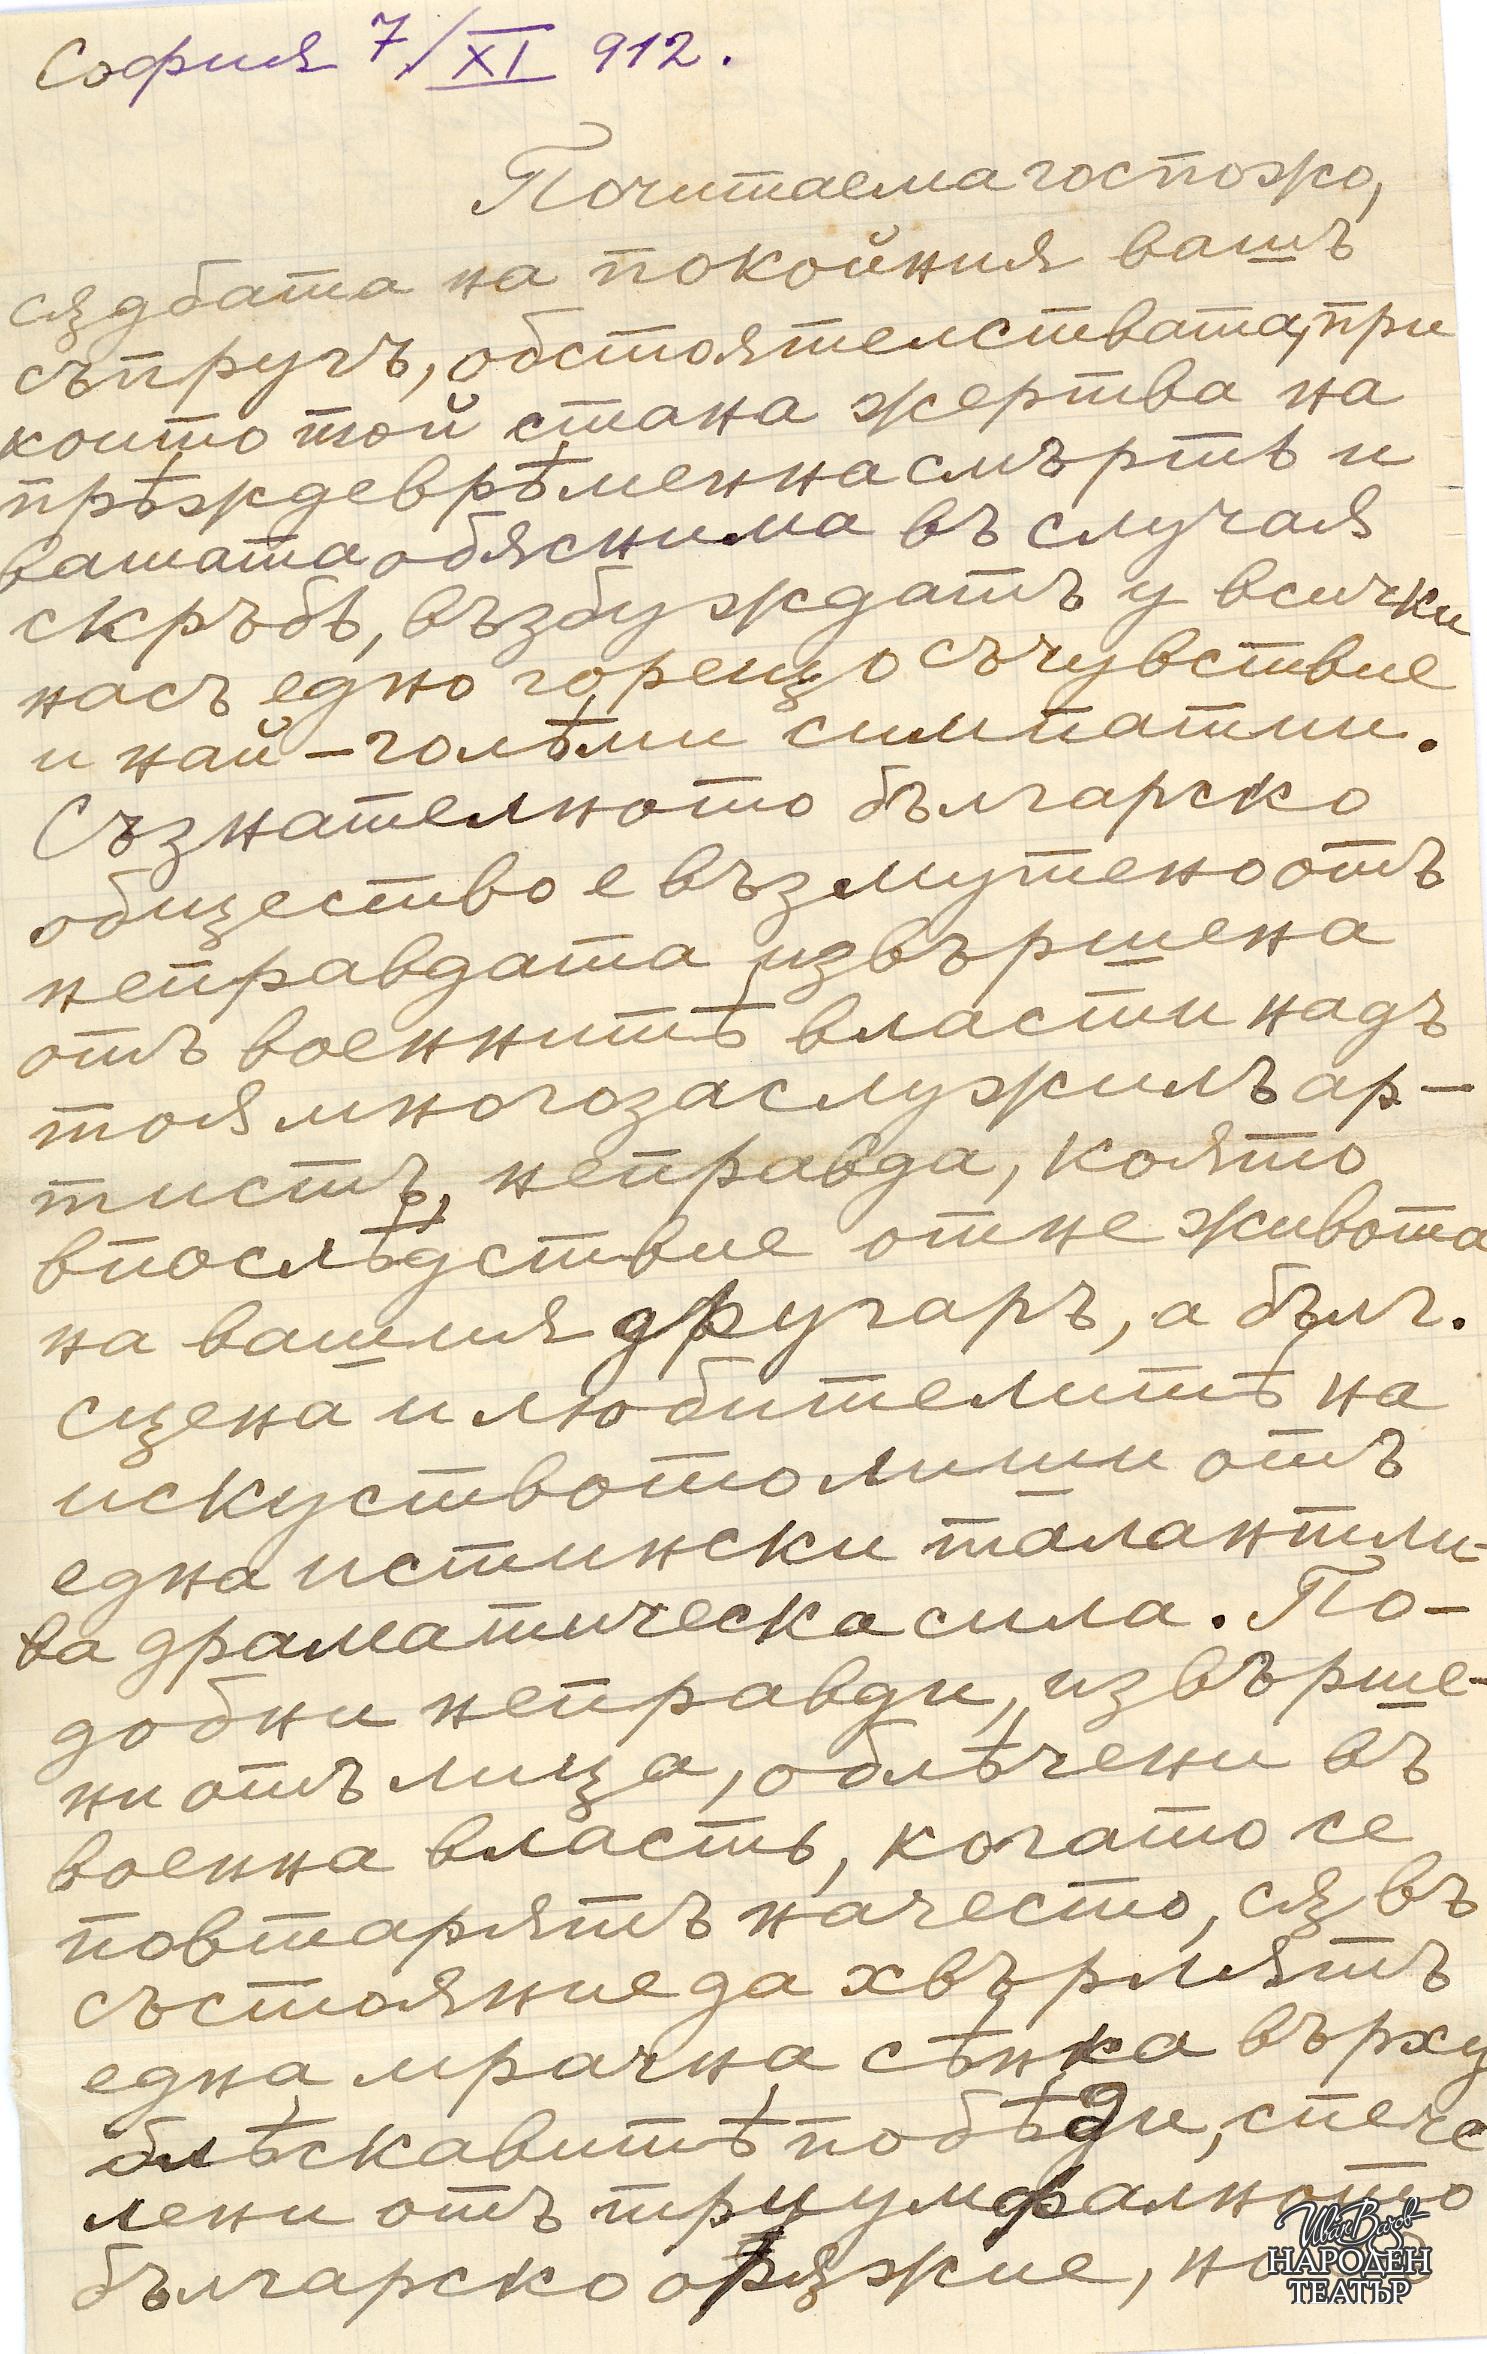 София 7/XI 912.
Почитаема госпожо,
сѫдбата на покойния вашъ
съпругъ, обстоятелствата, при
които той стана жертва на
прѣждеврѣменна смърть и
вашата обяснима въ случая
скръбь, възбуждатъ у всички
насъ едно горещо съчувствие
и най-голѣми симпатии.
Съзнателното българско
общество е възмутено отъ
неправдата извършена
отъ военнитѣ власти надъ
тоя многозаслужилъ ар-
тистъ, неправда, която
впослѣдствие отне живота
на вашия другаръ, а бълг.
сцена и любителитѣ на
искуството лиши отъ
една истински талантли-
ва драматическа сила. По-
добни неправди, извърше-
ни отъ лица, облѣчени въ
военна власть, когато се
повтарятъ начесто, сѫ въ
състояние да хвърлятъ
една мрачна сѣнка върху
блѣскавитѣ побѣди, спече
лени отъ триумфалното
българско орѫжие, но
Иван Вазов
НАРОДЕН
ТЕАТЪР